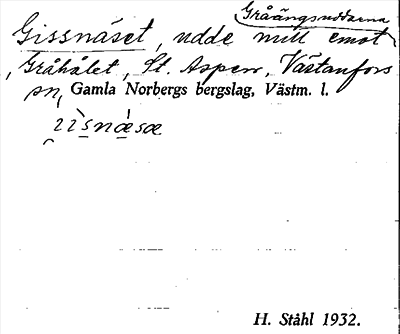 Gråängsuddarna
Gissnäset, udde mitt emot
Gråhålet, St. Aspen, Västanfors
sn, Gamla Norbergs bergslag, Västm. l.
H. Ståhl 1932.